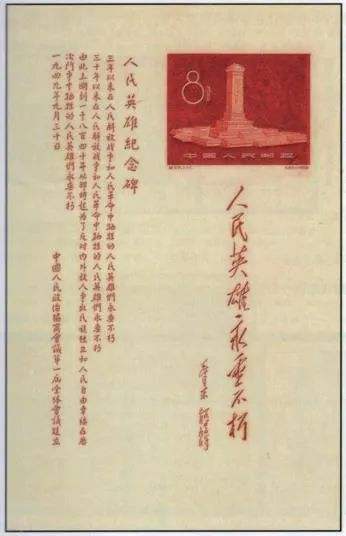 8分
中國人民郵政
人民英雄永垂不朽
毛泽东
人民英雄紀念碑
三年以来在人民解放战争和人民革命中牺牲的人民英雄們永垂不朽
三十年以来在人民解放战争和人民革命中牺牲的人民英雄們永垂不朽
由此上溯到一千八百四十年從那時起為了反对内外敌人争取民族独立和人民自由幸福在歷
次鬥争中牺牲的人民英雄們永垂不朽
一九四九年九月三十日
中國人民政治協商會議第一届全体會議建立